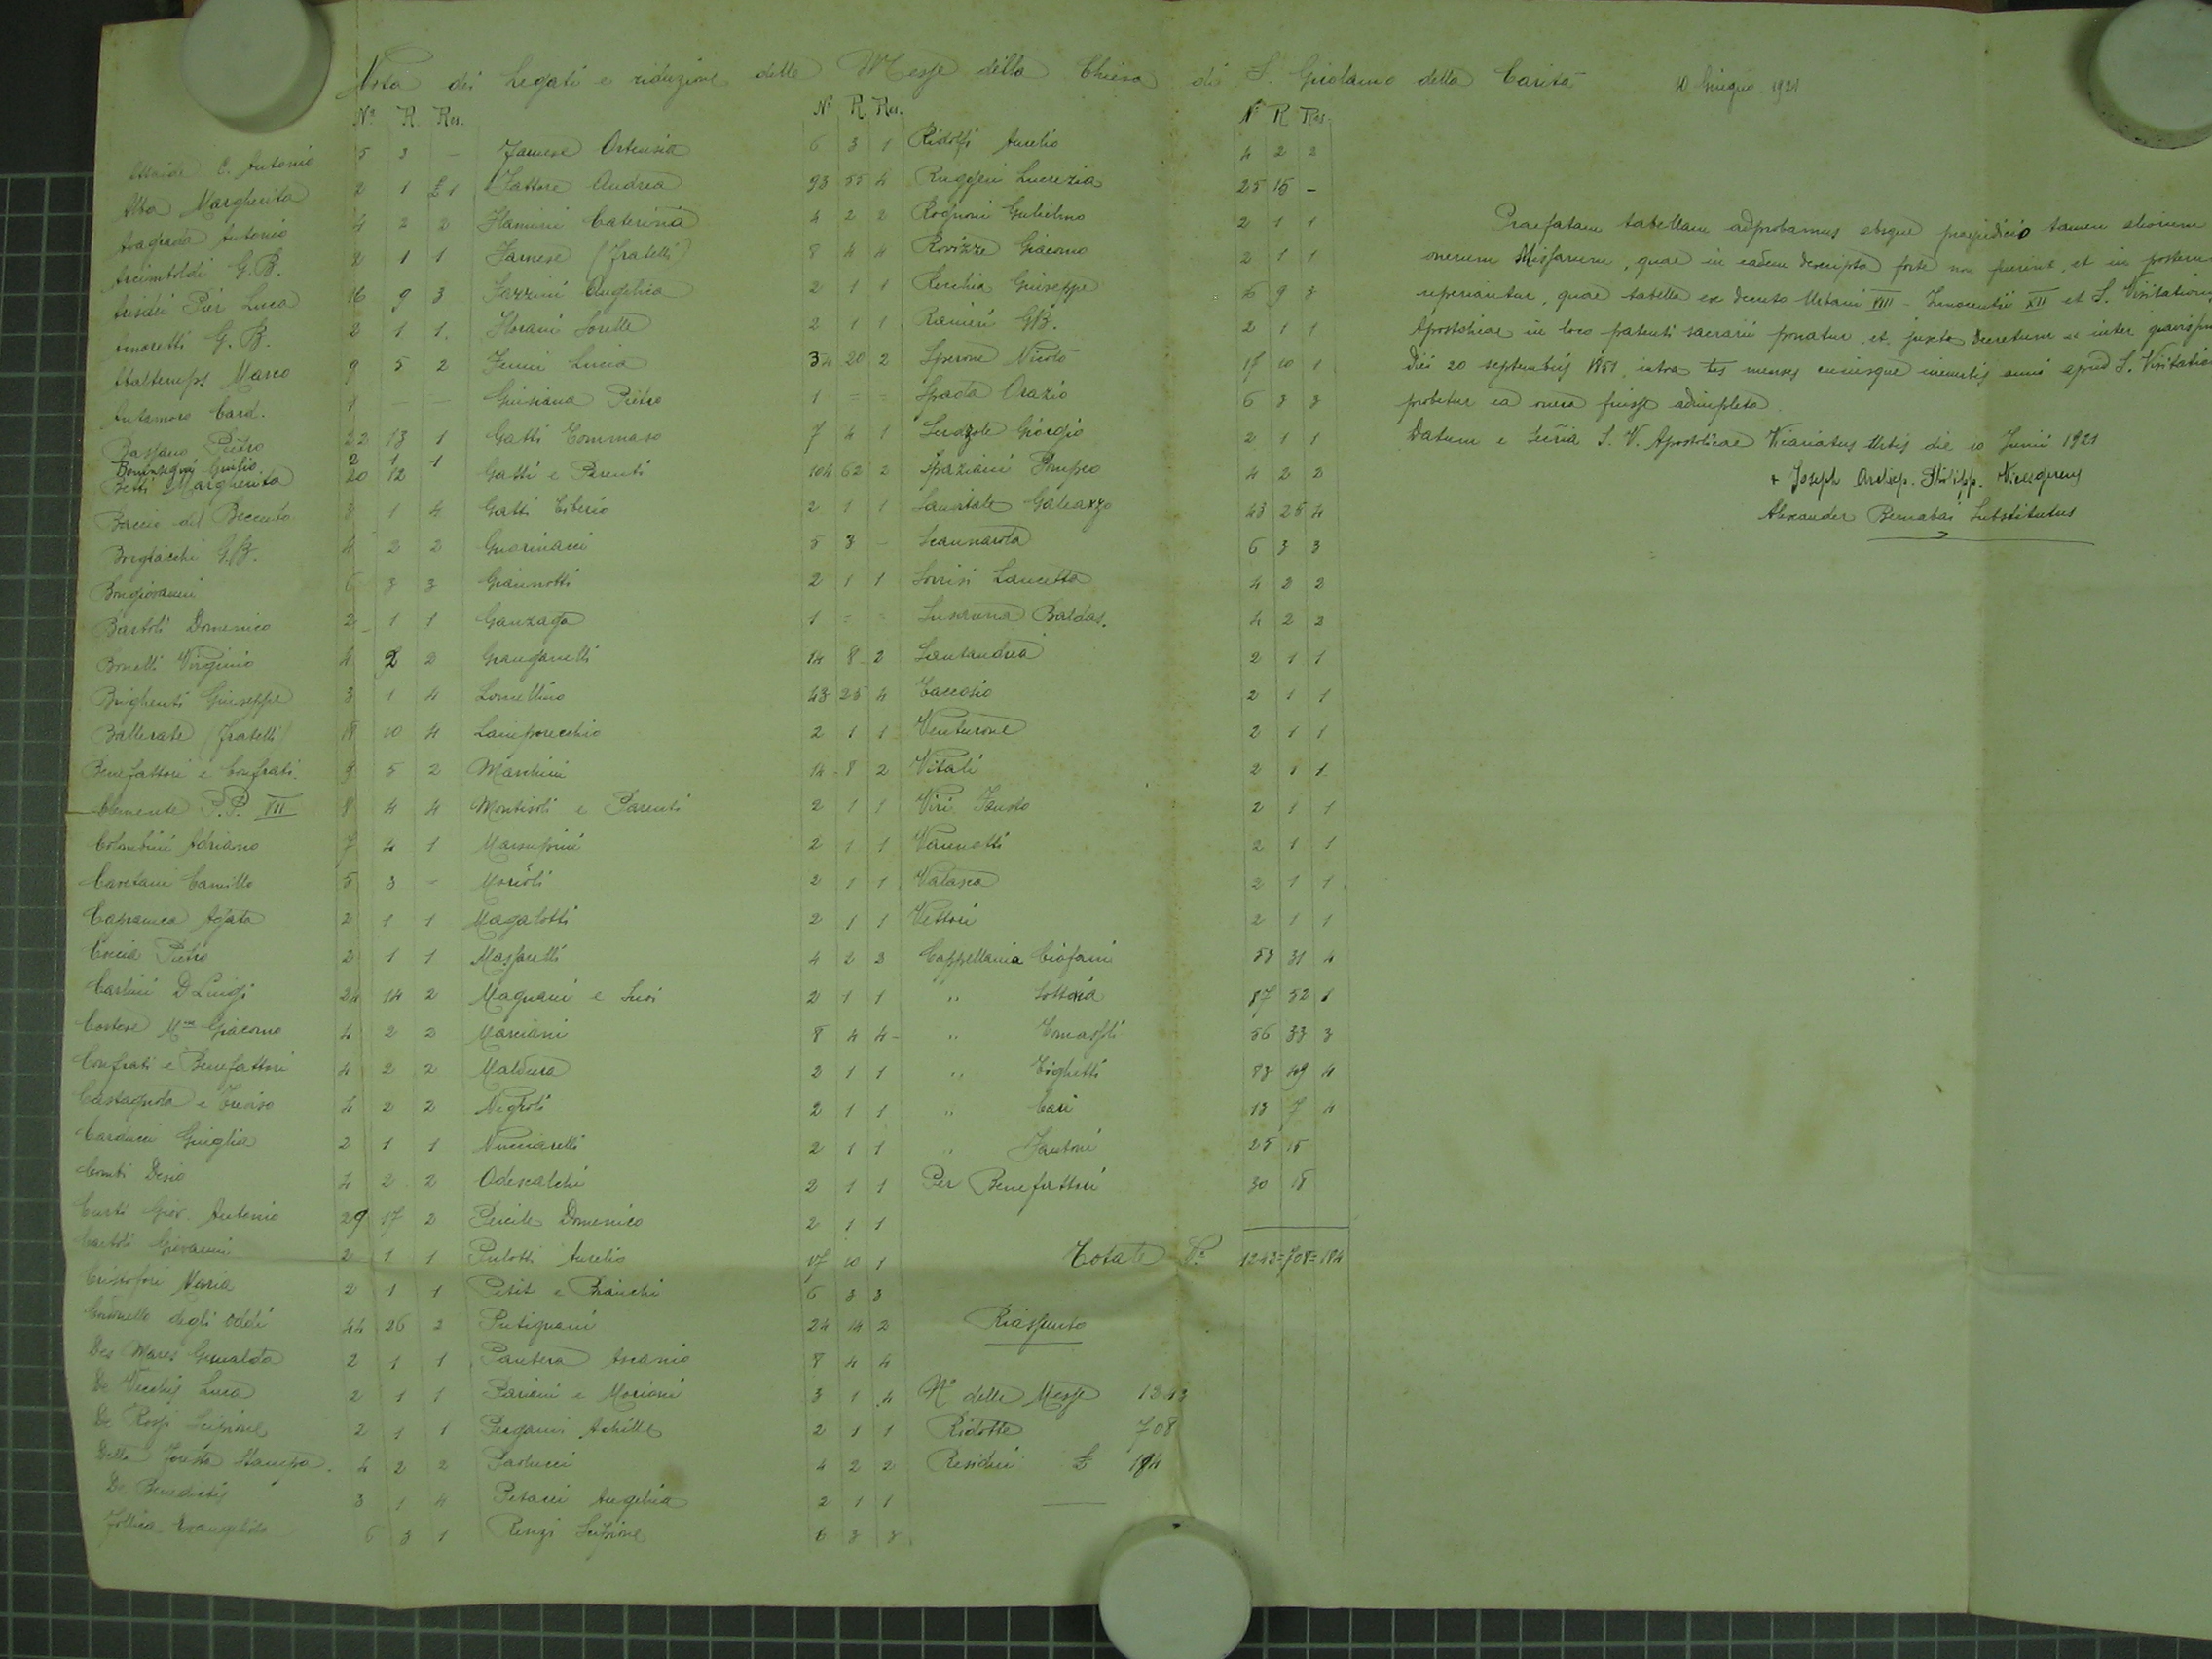 Nota dei Legati e riduzione delle Messe della Chiesa di S. Girolamo della Carità 10 Giugno 1921
Nº R. Res.
C. Antonio 5 3 –
Alba Margherita 2 1 £1
Antonio 4 2 2
Arcimboldi G. B. 2 1 1
Pier Luca 16 9 3
Amoretti G. B. 2 1 1.
Altalemps Marco 9 5 2
Antamoro Card. 1 – –
Bassano Pietro 22 13 1
Giulio 2 1 1
Betti Margherita 20 12
Baccio del Beccuto 3 1 4
G.B. 4 2 2
Bongiovanni 6 3 3
Bartoli Domenico 2 1 1
Bonelli Virginio 4 2 2
Brighenti Giuseppe 3 1 4
Ballerate (fratelli) 18 10 4
Benefattori e Confrati. 9 5 2
Clemente P.P. VII 8 4 4
Colombini Adriano 7 4 1
Caretani Camillo 5 3 –
Capranica Agata 2 1 1
Coccia Pietro 2 1 1
Carlini D Luigi 24 14 2
Giacomo 4 2 2
Confrati e Benefattori 4 2 2
Castagnola e 4 2 2
Carducci Guiglia 2 1 1
Conti 4 2 2
Curti Giov. Antonio 29 17 2
Giovanni 2 1 1
Cristofori Maria 2 1 1
degli Oddi 44 26 2
Des Mares 2 1 1
De Vecchis Luca 2 1 1
De Rossi Scipione 2 1 1
Della Stampa. 4 2 2
De Benedictis 3 1 4
6 3 1
Nº R. Res.
Farnese Ortensia 6 3 1
Fattore Andrea 93 55 4
Flamini Caterina 4 2 2
Farnese (fratelli) 8 4 4
Fazzini Angelica 2 1 1
Florani 2 1 1
Lucia 34 20 2
Pietro 1 = =
Gatti Tommaso 7 4 1
Gatti e Parenti 104 62 2
Gatti Tiberio 2 1 1
Guarinacci 5 3 –
Giannotti 2 1 1
Ganzaga 1 = =
Ganganelli 14 8 2
Lomellino 43 25 4
Lamporecchio 2 1 1
Marchini 14 8 2
Montisoli e Parenti 2 1 1
Marsupini 2 1 1
Morioli 2 1 1
Magalotti 2 1 1
Massarelli 4 2 2
Magnani e 2 1 1
Marciani 8 4 4 –
Maldura 2 1 1
Negroli 2 1 1
Nucciarelli 2 1 1
Odescalchi 2 1 1
Percile Domenico 2 1 1
Aurelio 17 10 1
Petit e Bianchi 6 3 3
Putignani 24 14 2
Pantera Ascanio 8 4 4
Pariani e Moriani 3 1 4
Pergami Achille 2 1 1
Paolucci 4 2 2
Petacci Angelica 2 1 1
Renzi Scipione 6 3 3
Nº R Res.
Ridolfi Aurelio 4 2 2
Ruggeri Lucrezia 25 15 –
Rognoni Gulielmo 2 1 1
Rovizze Giacomo 2 1 1
Recchia Giuseppe 16 9 3
Ranieri G.B. 2 1 1
Sperone Nicolò 17 10 1
Spada Orazio 6 3 3
Giorgio 2 1 1
Spaziani Pompeo 4 2 2
Sanvitale Galeazzo 43 25 4
Scannarola 6 3 3
Sorrisi Lancetta 4 2 2
Susanna Baldas. 4 2 2
Santandrea 2 1 1
Taccosio 2 1 1
Venturone 2 1 1
Vitali 2 1 1
Viri Fausto 2 1 1
Vannotti 2 1 1
Valasca 2 1 1
Vettori 2 1 1
Cappellania Ciofani 53 31 4
„ Sottoria 87 52 1
„ 56 33 3
„ Tighetti 83 49 4
„ Cari 13 7 4
„ Fantoni 25 15
Per Benefattori 30 18
Totale Nº 1242=708=184
Riassunto
Nº delle Messe 1243
Ridotte 708
Residui £ 184
Praefatam tabellam adprobamus absque praejudicio tamen aliorum
onerum Missarum, quae in eadem descripta forte non fuerint, et in posterum
reperiantur, quae tabella ex decreto Urbani VIII – Innocentii XII et S. Visitationis
Apostolicae in loco patenti sacrarii ponatur, et juxta Decretum
Diei 20 septembris 1851, intra tres menses cuiusque ineuntis anni apud S. Visitation
probetur ea onera fuisse adimpleta.
Datum e Secria S. V. Apostolicae Vicariatus Urbis die 10 Junii 1921
+ Joseph Archiep. Philipp. Vicesgerens
Alexander Bernabai Substitutus